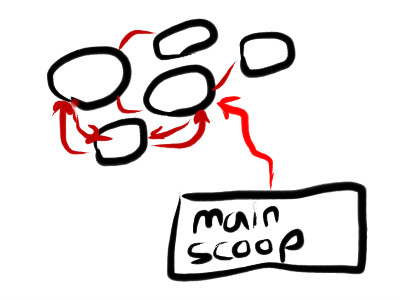 main
scoop